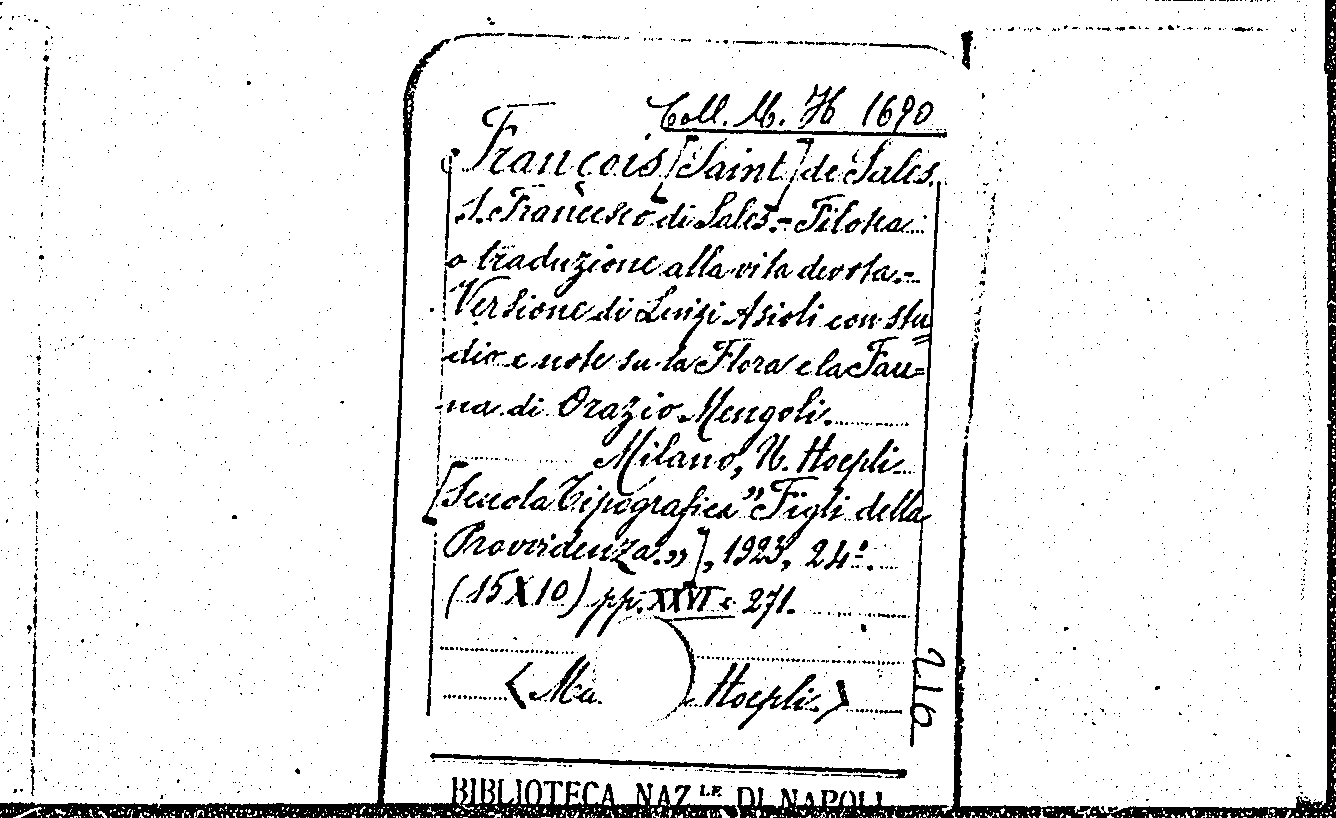 Coll. M. H 1690
François [Saint] de Sales.
S. Francesco di Sales.- Filotea
o traduzione alla vita devota.-
Versione di Luigi Asioli con stu=
dio e note su la Flora e la Fau=
na di Orazio Mengoli.
Milano, U. Hoepli
[Scuola Tipografica "Figli della
Provvidenza."], 1923, 24º.
(15X10) pp. XXVI e 271.
<Ma Hoepli.>
216
BIBLIOTECA NAZ.LE DI NAPOLI